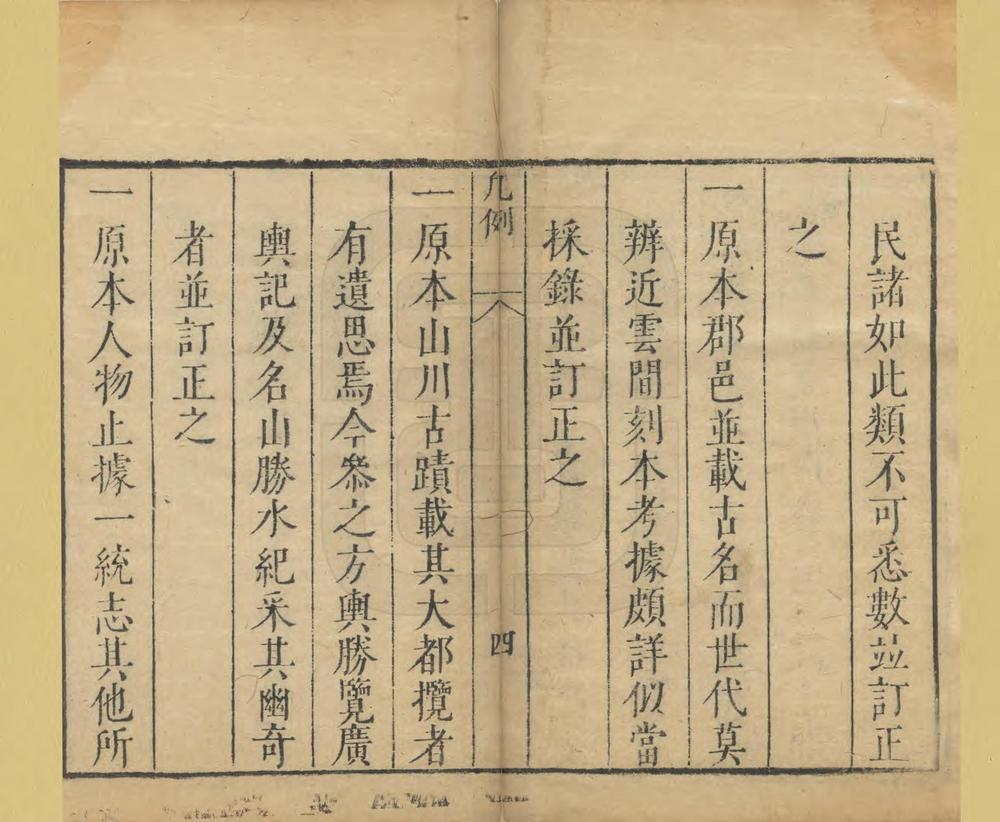 民諸如此類不可悉數竝訂正
之
一原本郡邑並載古名而世代莫
辨近雲間刻本考據頗詳似當
採錄並訂正之
凡例
四
一原本山川古蹟載其大都攬者
有遺思焉今叅之方輿勝覽廣
輿記及名山勝水紀采其幽奇
者並訂正之
一原本人物止據一統志其他所